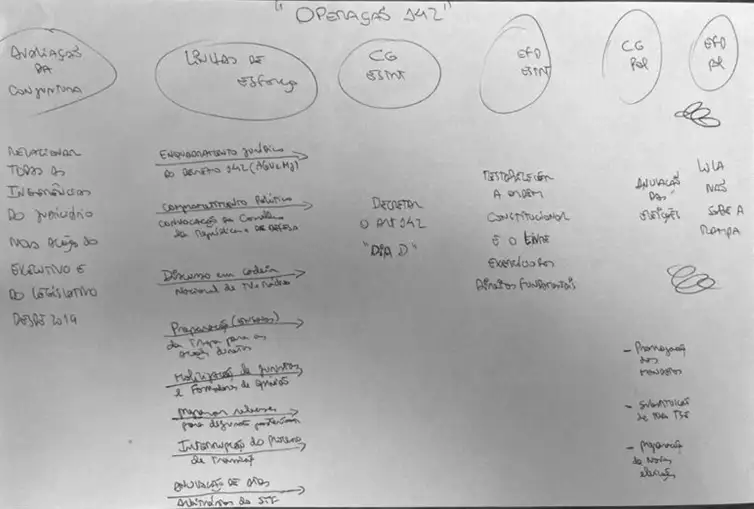 "OPERAÇÃO 142"
AVALIAÇÃO
DA
CONJUNTURA
LINHAS DE
ESFORÇO
CG
ESTRT
EFD
ESTRT
CG
POL
EFD
POL
RELACIONAR
TODAS AS
INTERFERÊNCIAS
DO JUDICIÁRIO
NAS AÇÕES DO
EXECUTIVO E
DO LEGISLATIVO
DESDE 2019
ENQUADRAMENTO JURÍDICO
DO DECRETO 142 (AGU e MJ)
Comprometimento Político
CONVOCAÇÃO do Conselho
da República e DA DEFESA
Discurso em cadeia
Nacional de TV e Rádio
Preparação
da Tropa para as
ações diretas
Mobilização de juristas
e Formadores de opinião
para discursos
Interrupção do Processo
de Transição
ANULAÇÃO DE ATOS
Arbitrários do STF
DECRETAR
O ART 142
"DIA D"
RESTABELECER
A ORDEM
CONSTITUCIONAL
E O LIVRE
EXERCÍCIO DOS
DIREITOS FUNDAMENTAIS
ANULAÇÃO
DAS
ELEIÇÕES
- Prorrogação
dos
MANDATOS
- SUBSTITUIÇÃO
de todo TSE
- preparação
de Novas
eleições
LULA
NÃO
SOBE A
RAMPA